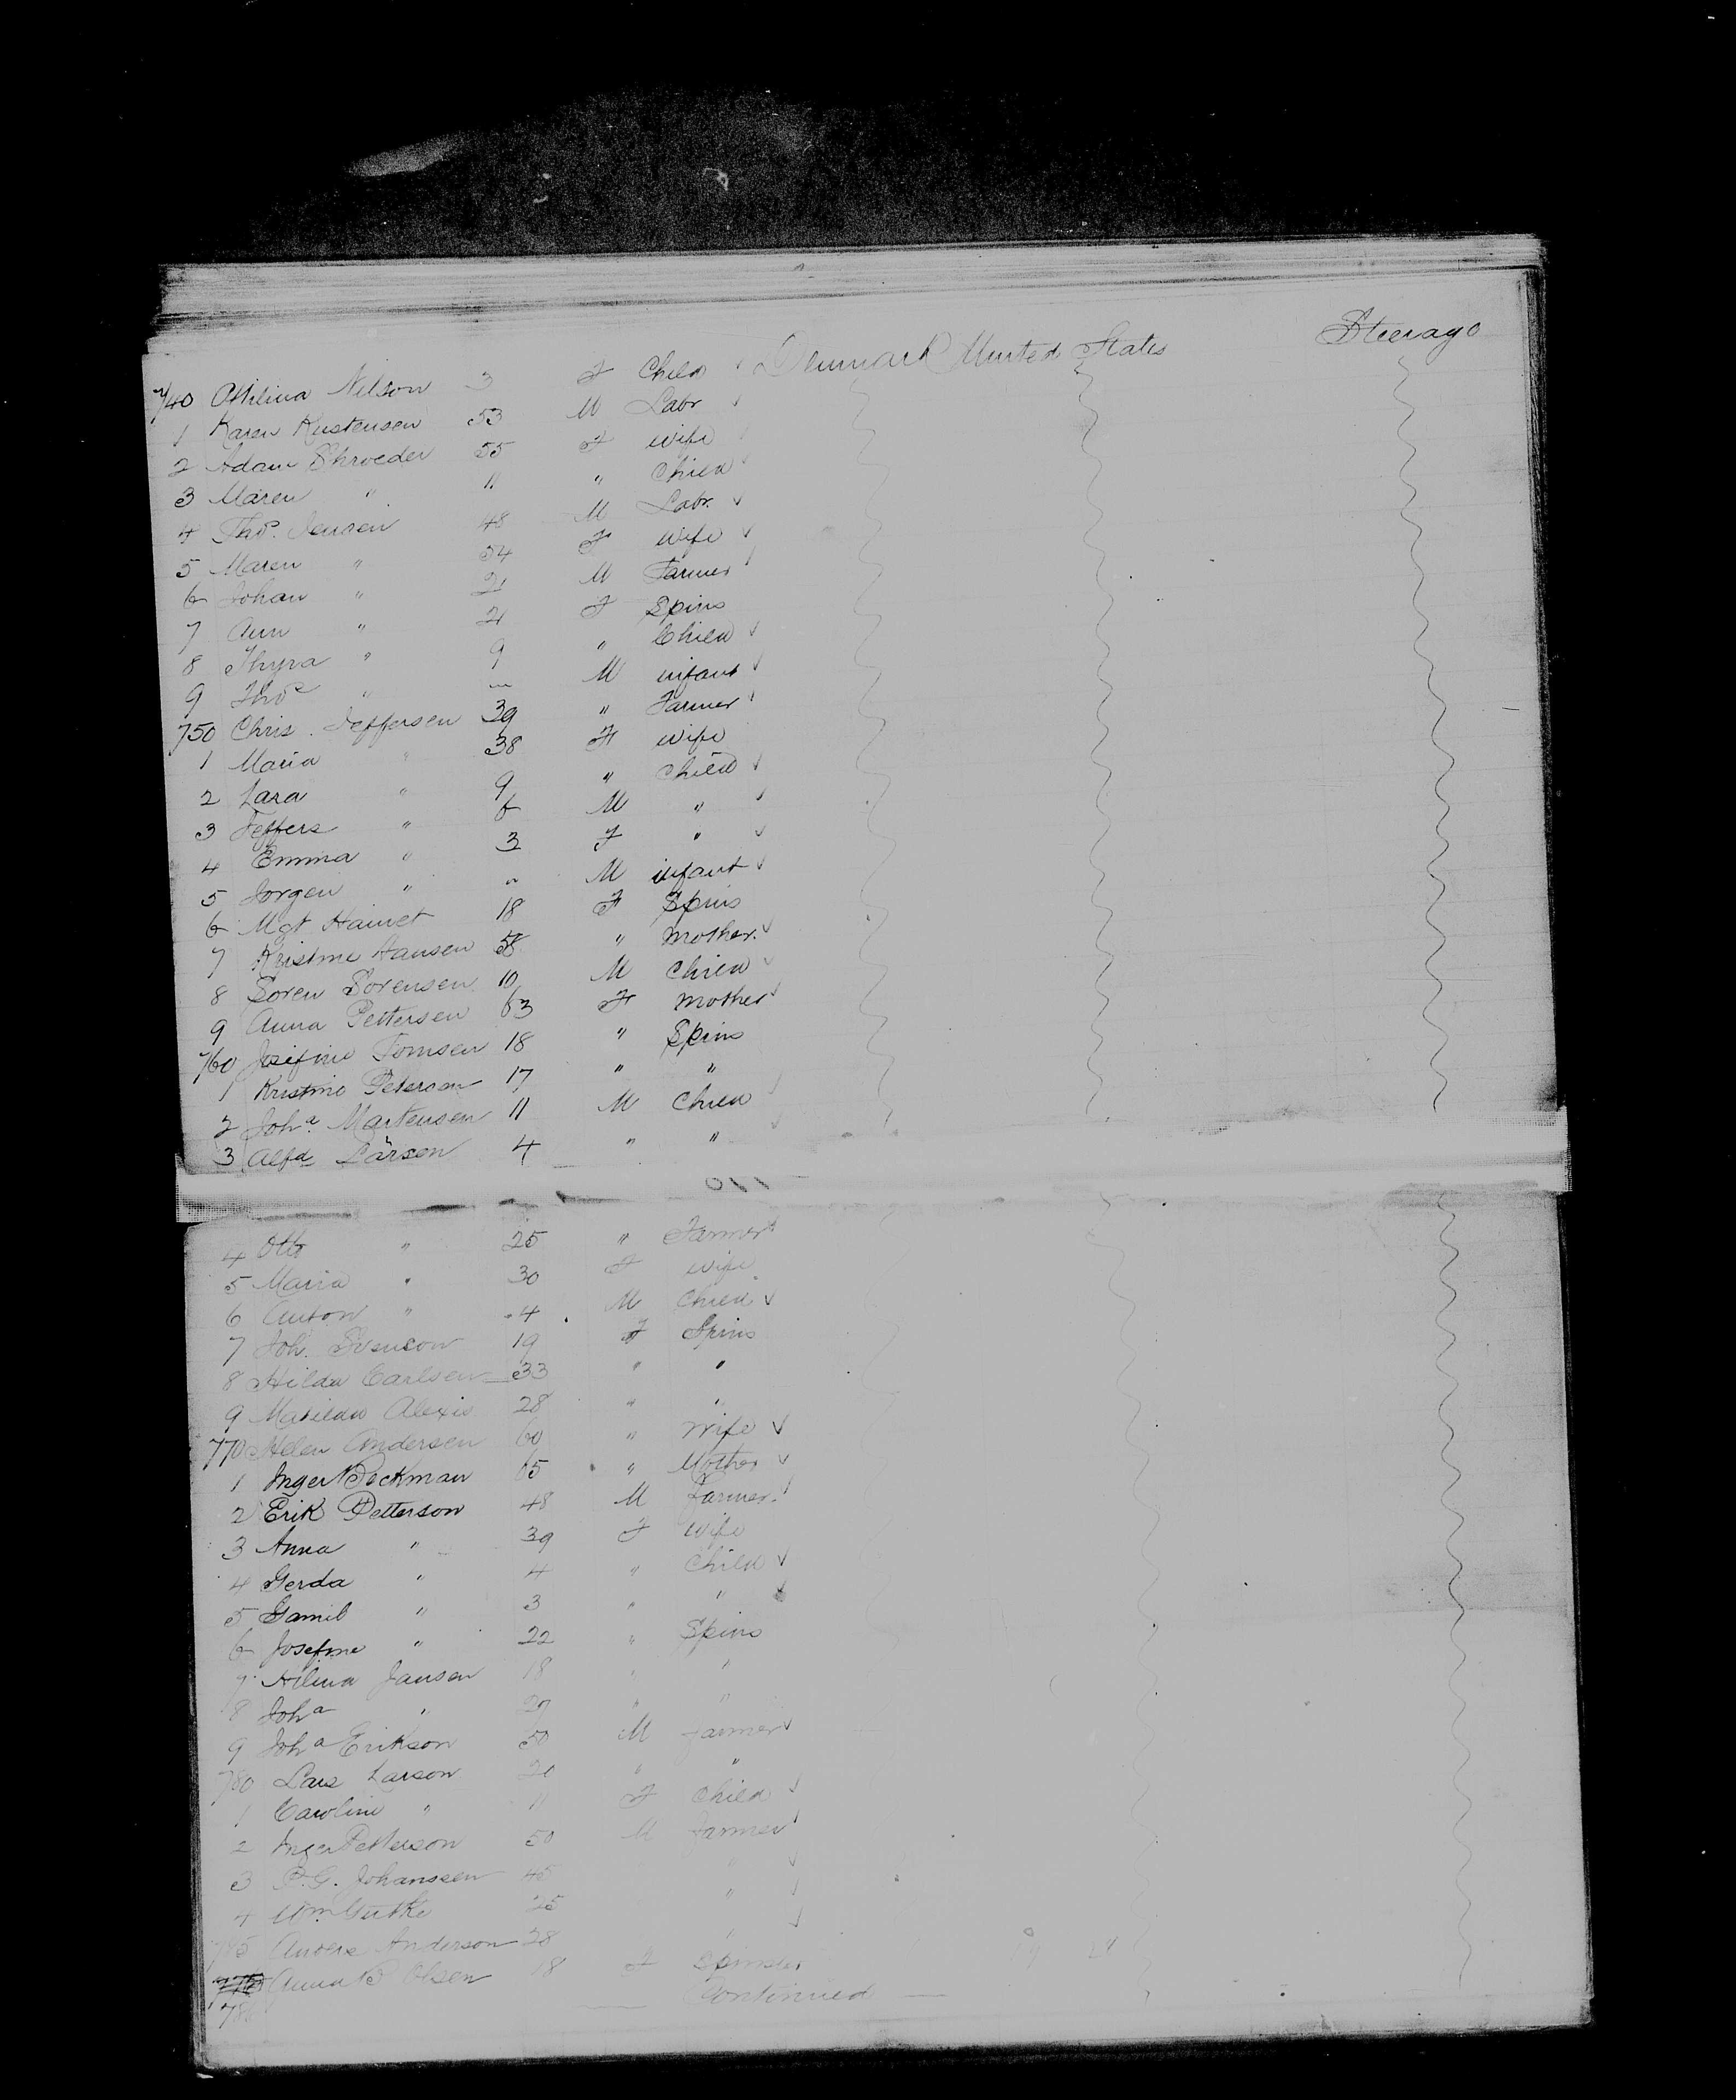 Steerage
740 Ottilina Nilson 3 F Child Denmark United States
1 Karen Kustensen 53 M Labr
2 Adam Shroeder 55 F wife
3 Maren " 11 " Child
4 Thos. Jensen 48 M Labr.
5 Maren " 54 F wife
6 Johan " 21 M Farmer
7 Ann " 21 F Spins
8 Thyra " 9 " Child
9 Thos " — M infant
750 Chris. Jeffersen 39 " Farmer
1 Maria " 38 F wife
2 Lara " 9 " Child
3 Jeffers " 6 M "
4 Emma " 3 F "
5 Jorgen " " M infant
6 Mgt Hainet 18 F Spins
7 Kristine Hansen 58 " mother.
8 Soren Sorensen 10 M Child
9 Anna Pettersen 63 F mother
760 Josefine Tomsen 18 " Spins
1 Kristine Peterson 17 " "
2 Joha. Martensen 11 M Child
3 Alfd Larson 4 " "
110
4 Otto " 25 " Farmer
5 Maria " 30 F wife
6 Anton " 4 M Child
7 Joh. Svenson 19 F Spins
8 Hilda Carlsen 33 " "
9 Matilda Alexis 28 " "
770 Helen Andersen 60 " Wife
1 Inger Beckman 65 " Mother
2 Erik Petterson 48 M Farmer.
3 Anna " 39 F wife
4 Gerda " 4 " Child
5 Gamil " 3 " "
6 Josefine " 22 " Spins
7 Hilma Jansen 18 " "
8 Joha " "
9 Joha Erikson 50 M farmer
780 Lars Larson 20 " "
1 Caroline " 11 F Child
2 Inger Petterson 50 M Farmer
3 P.G. Johanssen 45 "
4 Wm. Gutke 25 "
785 Anders Anderson 28 "
Anna B Olsen 18 F Spinster
786 Continued